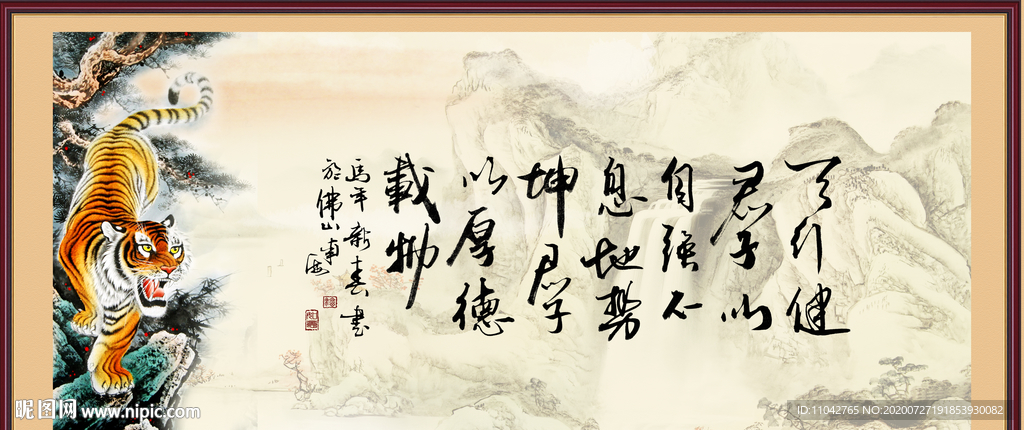 天行健
君子以
自強不
息地势
坤君子
以厚德
載物
馬年新春書
於佛山東海
昵图网 www.nipic.com
ID:11042765 NO:20200727191853930082